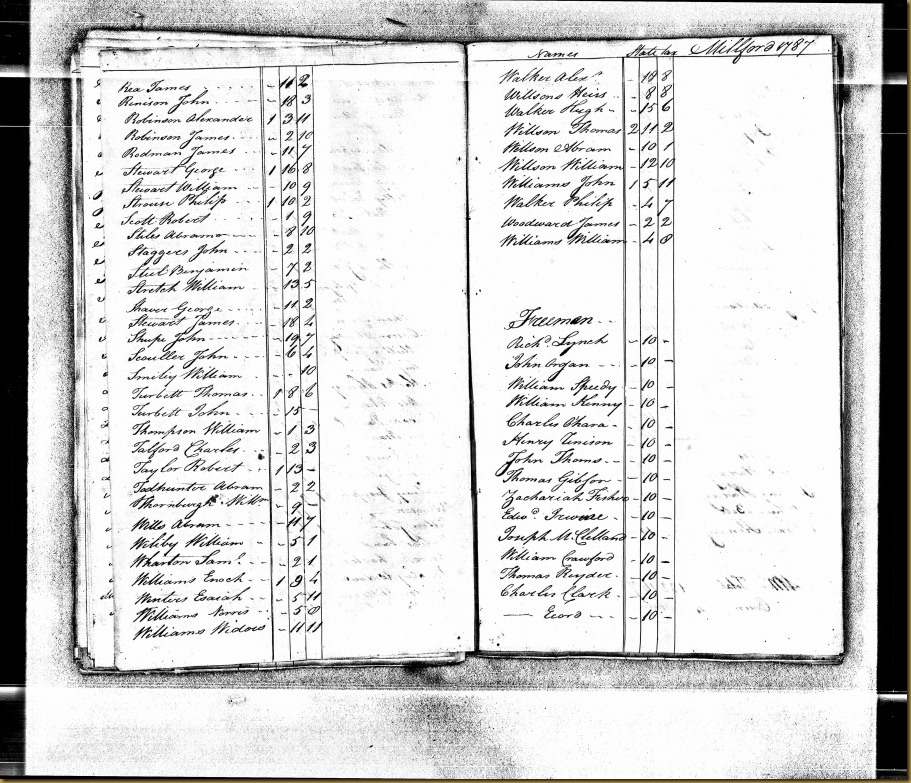 Rea James - 11 2
Renison John - 18 3
Robinson Alexander 1 3 11
Robinson James - 2 10
Rodman James - 11 7
Stewart George 1 16 8
Stewart William - 10 9
Strouse Philip 1 10 2
Scott Robert - 1 9
Stiles Abram - 8 10
Staggers John - 2 2
Steel Benjamin - 7 2
Stretch William - 13 5
Shaver George - 11 2
Stewart James - 18 4
Shupe John - 19 7
Scouller John - 6 4
Smiley William - - 10
Turbett Thomas 1 8 6
Turbett John - 15 -
Thompson William - 1 3
Talford Charles - 2 3
Taylor Robert 1 13 -
Todhunter Abram - 2 2
Thornburgh Willm - 9 -
Wells Abram - 11 7
Wiliby William - 5 1
Wharton Saml. - 2 1
Williams Enoch 1 9 4
Winters Esaiah - 5 11
Williams Norris - 5 8
Williams Widow - 11 11
Names State tax Millford 1787
Walker Alexr. - 18 8
Willsons Heirs - 8 8
Walker Hugh - 15 6
Willson Thomas 2 11 2
Willson Abram - 10 1
Willson William - 12 10
Williams John 1 5 11
Walker Philip - 4 7
Woodward James - 2 2
Williams William - 4 8
Freeman
Richd. Lynch - 10 -
John Organ - 10 -
William Speedy - 10 -
William Kenny - 10 -
Charles Ohara - 10 -
Henry - 10 -
John Thoms - 10 -
Thomas Gibson - 10 -
Zachariah Fisher - 10 -
Edwd. Irwine - 10 -
Joseph McClelland - 10 -
William Crawford - 10 -
Thomas Ruyder - 10 -
Charles Clark - 10 -
- 10 -